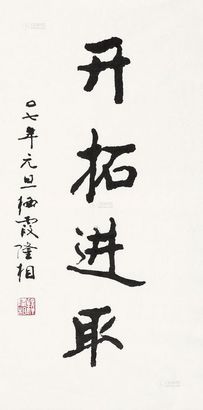 开拓进取
〇七年元旦栖霞隆相